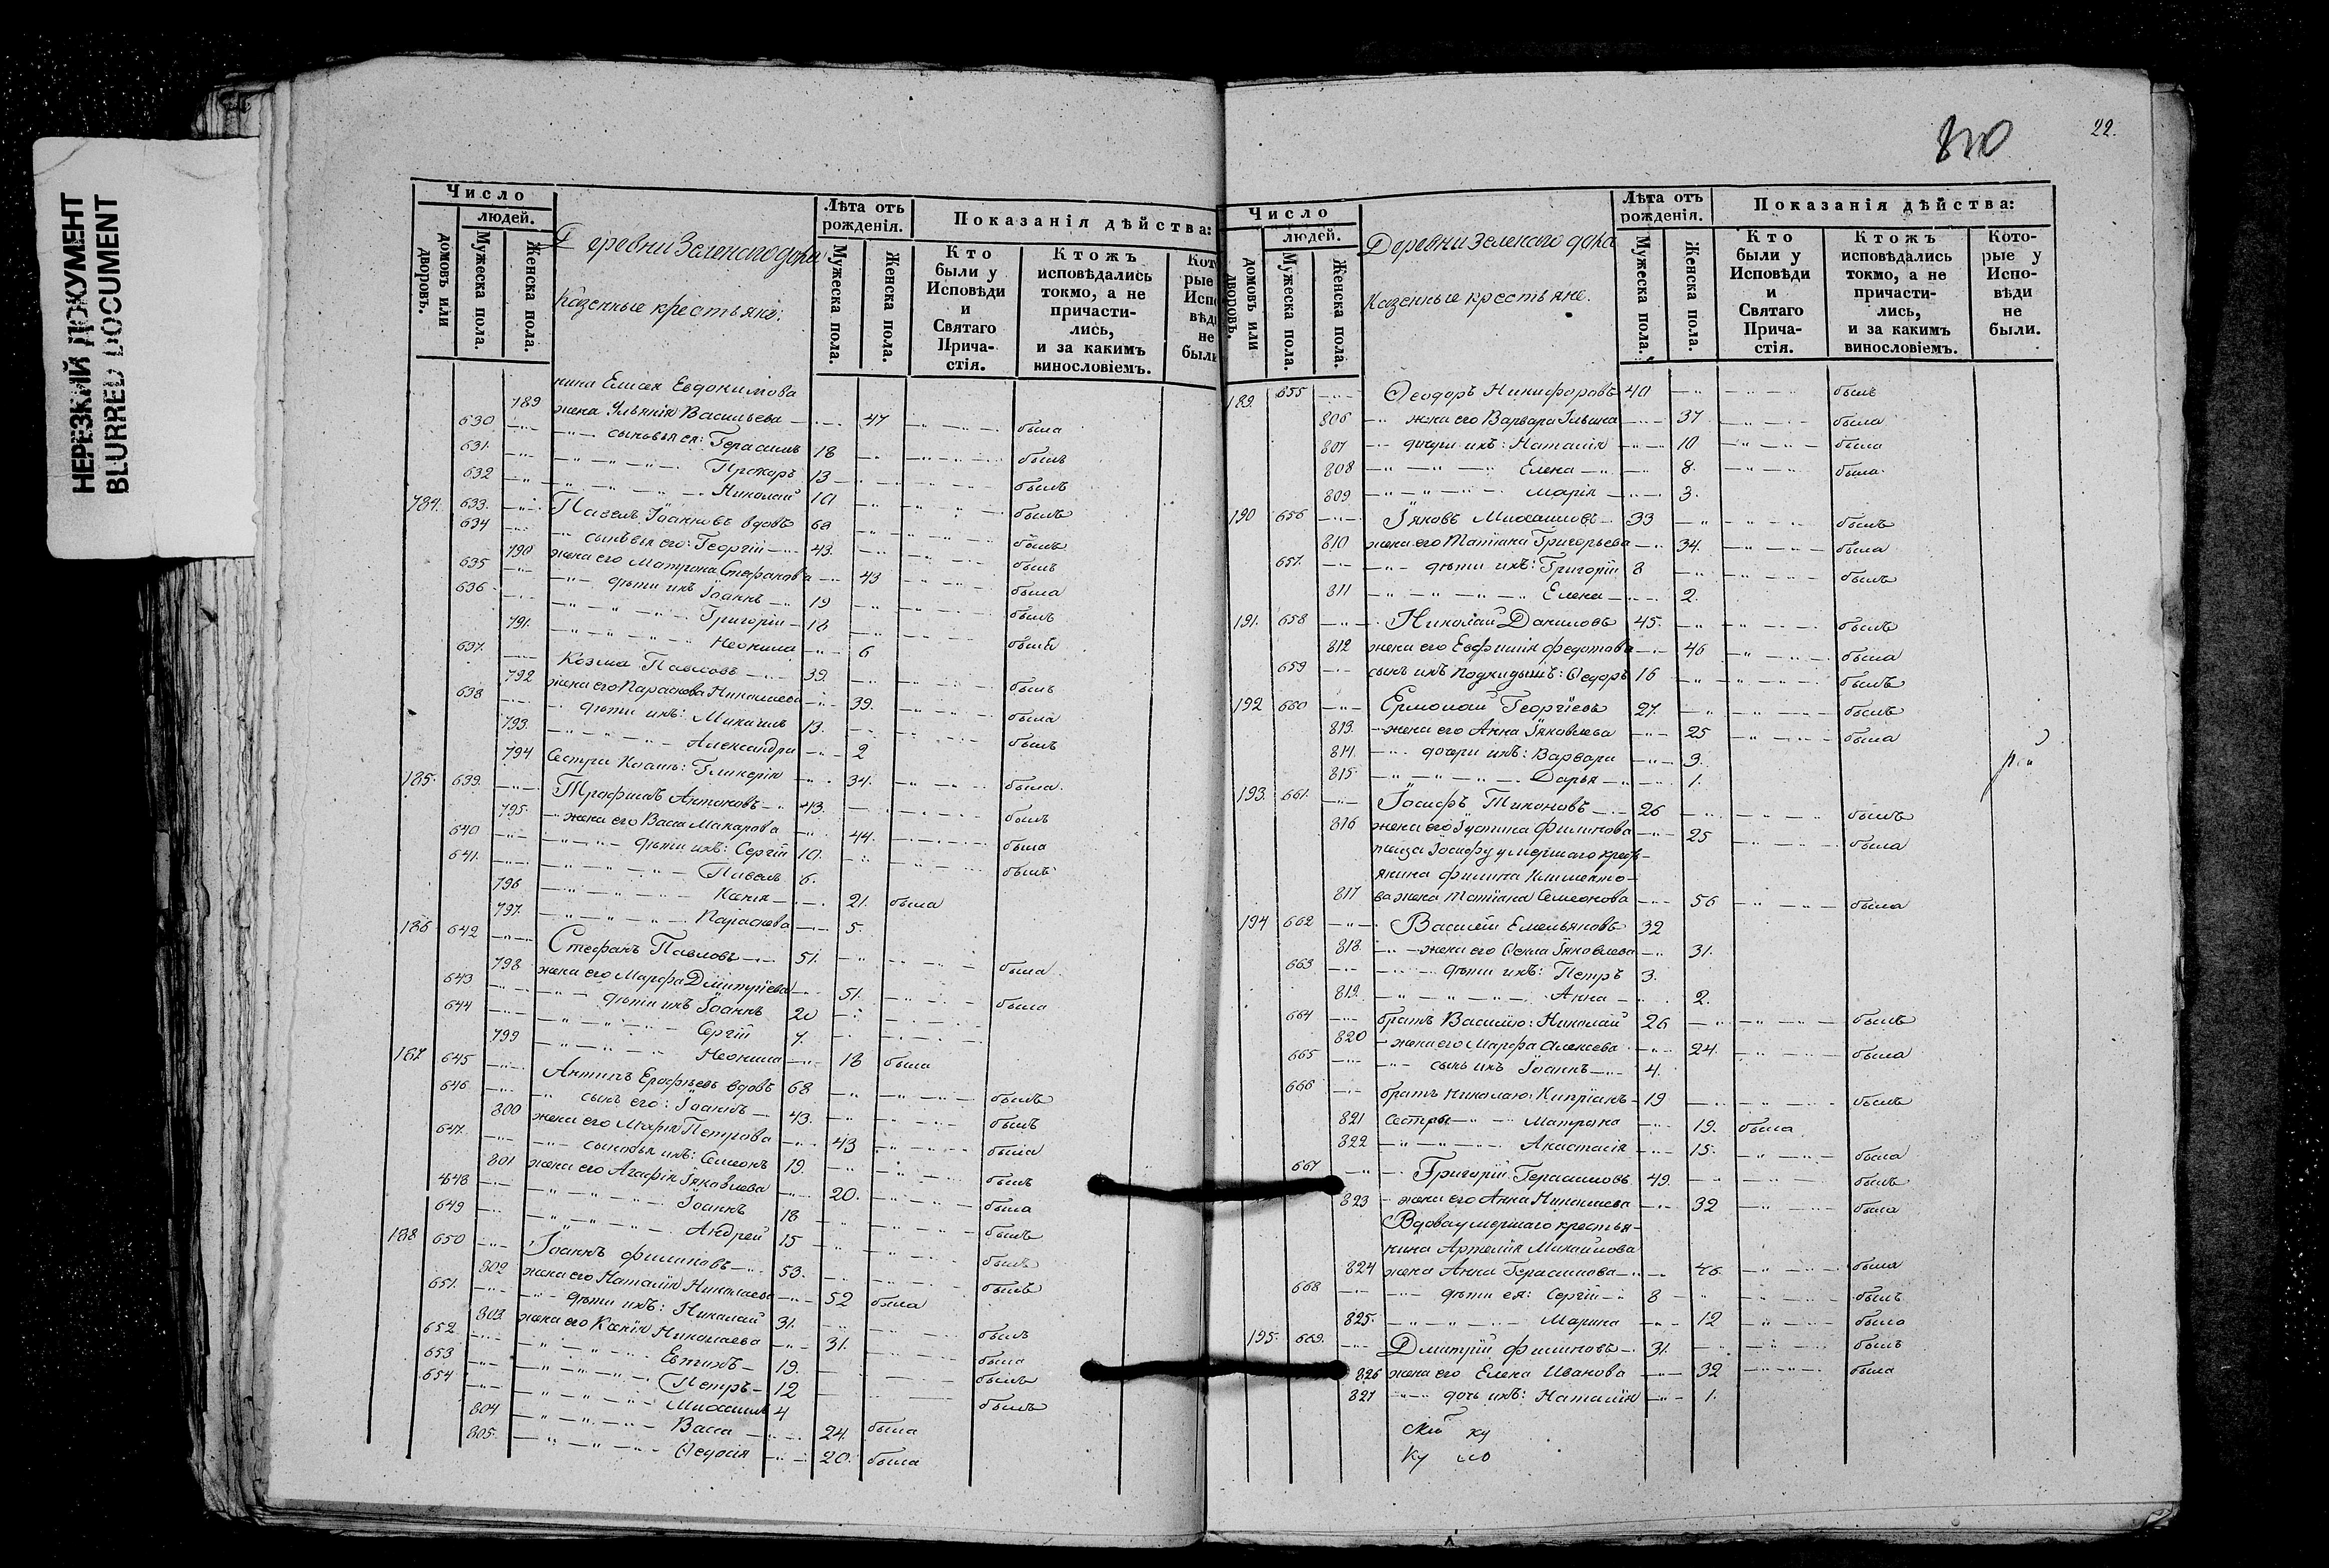 НЕРЕЗКИЙ ДОКУМЕНТ
BLURRED DOCUMENT
Число
людей.
домовъ или дворовъ.
Мужеска пола.
Женска пола.
Деревни Зеленаго дока
Казенные крестьяне.
Лѣта отъ рожденія.
Мужеска пола.
Женска пола.
Показанія дѣйства:
Кто были у Исповѣди и Святаго Прича-стія.
Ктожъ исповѣдались токмо, а не причасти-лись, и за какимъ винословіемъ.
нина Елисея Евдокимова
789 жена Ульянія Васильева 47 была
630 сыновья ея: Герасимъ 18 былъ
631. Прохоръ 13 былъ
632 Николай 10 былъ
184. 633. Павелъ Іоанновъ вдовъ 60 былъ
634 сыновья его: Георгій 43. былъ
790 жена его Матрона Стефанова 43 была
635 дѣти ихъ Іоаннъ 19 былъ
636 Григорій 18 былъ
791. Неонила 6
637. Козма Павловъ 39. былъ
792 жена его Параскева Николаева 39. была
638 дѣти ихъ: Михаилъ 13. былъ
793. Александра 2
794 Сестра Козмы: Гликерія 34. была
185. 639. Трофимъ Антоновъ 43. былъ
795. жена его Васса Макарова 44. была
640 дѣти ихъ: Сергій 10. былъ
641. Павелъ 6.
796 Ксенія 21. была
797. Параскева 5.
186 642 Стефанъ Павловъ 51. была
798 жена его Марфа Дмитріева 51. была
643 дѣти ихъ Іоаннъ 20
644 Сергій 7.
799 Неонила 18 была
187 645 Антипъ Ерофѣевъ вдовъ 68 былъ
646 сынъ его: Іоаннъ 43. былъ
800 жена его Марія Петрова 43 была
647. сыновья ихъ: Семеонъ 19. былъ
801 жена его Агафія Іяковлева 20. была
648 Іоаннъ 18 былъ
649 Андрей 15 былъ
188 650 Іоаннъ Филиповъ 53. былъ
802 жена его Наталія Николаева 52 была
651. дѣти ихъ: Николай 31. былъ
803. жена его Ксенія Николаева 31. была
652 Евтихъ 19. былъ
653 Петръ 12 былъ
654 Михаилъ 4
804 Васса 24. была
805. Ѳедосія 20. была
810
22.
Число
людей.
домовъ или дворовъ.
Мужеска пола.
Женска пола.
Деревни Зеленаго дока
Казенные крестьяне.
Лѣта отъ рожденія.
Мужеска пола.
Женска пола.
Показанія дѣйства:
Кто были у Исповѣди и Святаго Прича-стія.
Ктожъ исповѣдались токмо, а не причасти-лись, и за какимъ винословіемъ.
Кото-рые у Испо-вѣди не были.
189. 655 Ѳеодоръ Никифоровъ 40 былъ
806 жена его Варвара Ильина 37 была
807 дочери ихъ: Наталія 10 была
808 Елена 8. была
809 Марія 3.
190 656 Іяковъ Михаиловъ 33 былъ
810 жена его Татіана Григорьева 34. была
657. дѣти ихъ: Григорій 8 былъ
811 Елена 2.
191. 658 Николай Даниловъ 45. былъ
812 жена его Евфимія Федотова 46 была
659 сынъ ихъ подкидышъ: Ѳедоръ 16 былъ
192 660 Ермолай Георгіевъ 27. былъ
813. жена его Анна Іяковлева 25 была
814. дочери ихъ: Варвара 3.
815. Дарья 1.
193. 661. Іосифъ Тихоновъ 26 былъ
816 жена его Іустина Филипова 25 была
теща Іосифу умершаго крест-
янина Филипа Климентo-
817 ва жена Татіана Семеонова 56 была
194 662 Василій Емельяновъ 32
818. жена его Ѳекла Іяковлева 31.
663 дѣти ихъ: Петръ 3.
819. Анна 2.
664 братъ Василію: Николай 26 былъ
820 жена его Марфа Алексѣева 24. была
665 сынъ ихъ Іоаннъ 4.
666 братъ Николаю: Кипріанъ 19 былъ
821 Сестры Матрона 19. была
822 Анастасія 15. была
667 Григорій Герасимовъ 49. былъ
823 жена его Анна Николаева 32 была
Вдова умершаго крестья-
нина Артемія Михайлова
824 жена Анна Герасимова 46. была
668 дѣти ея: Сергій 8 былъ
825. Марина 12 была
195. 669. Дмитрій Филиповъ 31. былъ
826 жена его Елена Иванова 32 была
827 дочь ихъ: Наталія 1.